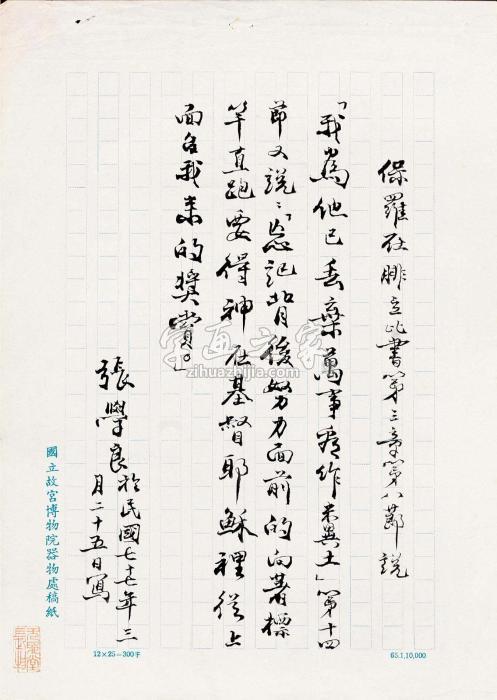 保羅在腓立比書第三章第八節說
「我為他已丟棄萬事看作糞土」第十四
節又說：「忘記背後努力面前的向著標
竿直跑要得神在基督耶穌裡從上
面召我來的獎賞。」
張學良於民國七十七年三
月二十五日寫
國立故宮博物院器物處稿紙
12×25=300字
65.1.10,000
字画之家
zihuazhijia.com